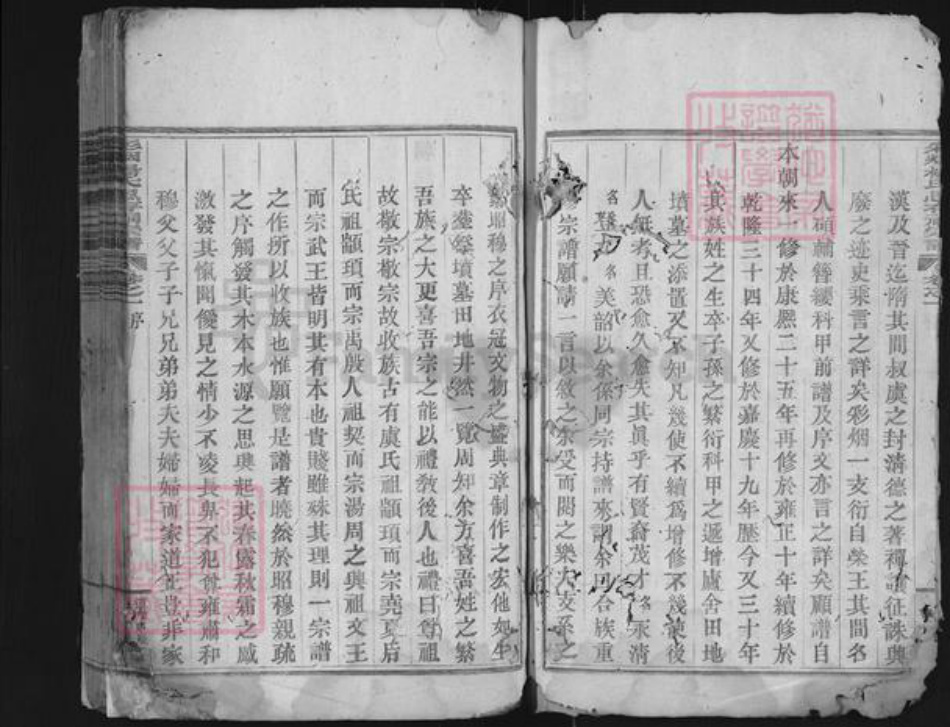 漢及晉迄隋其間叔虞之封清德之著禪諭征誅興
廢之迹史乘言之詳矣彩烟一支衍自榮王其間名
人碩輔簪纓科甲前譜及序文亦言之詳矣顧譜自
本朝來一修於康熈二十五年再修於雍正十年續修於
乾隆三十四年又修於嘉慶十九年歷今又三十年
其族姓之生卒子孫之繁衍科甲之遞增廬舍田地
墳墓之添置又不知凡幾使不續爲增修不幾使後
人無考且恐愈久愈失其真乎有賢裔茂才名永清
名登名美韶以余係同宗持譜來謂余曰合族重
宗譜願請一言以敘之余受而閱之樂夫支系之
昭穆之序衣冠文物之盛典章制作之宏他如生
卒塋墳墓田地井然一覽周知余方喜吾姓之繁
吾族之大更喜吾宗之能以禮敎後人也禮曰尊祖
故敬宗敬宗故收族古有虞氏祖顓頊而宗堯夏后
氏祖顓頊而宗禹殷人祖契而宗湯周之興祖文王
而宗武王皆明其有本也貴賤雖殊其理則一宗譜
之作所以收族也惟願覽是譜者曉然於昭穆親疏
之序觸發其木本水源之思興起其春露秋霜之感
激發其愾聞僾見之情少不凌長卑不犯尊雍肅和
穆父父子子兄兄弟弟夫夫婦婦而家道 豈非家
序